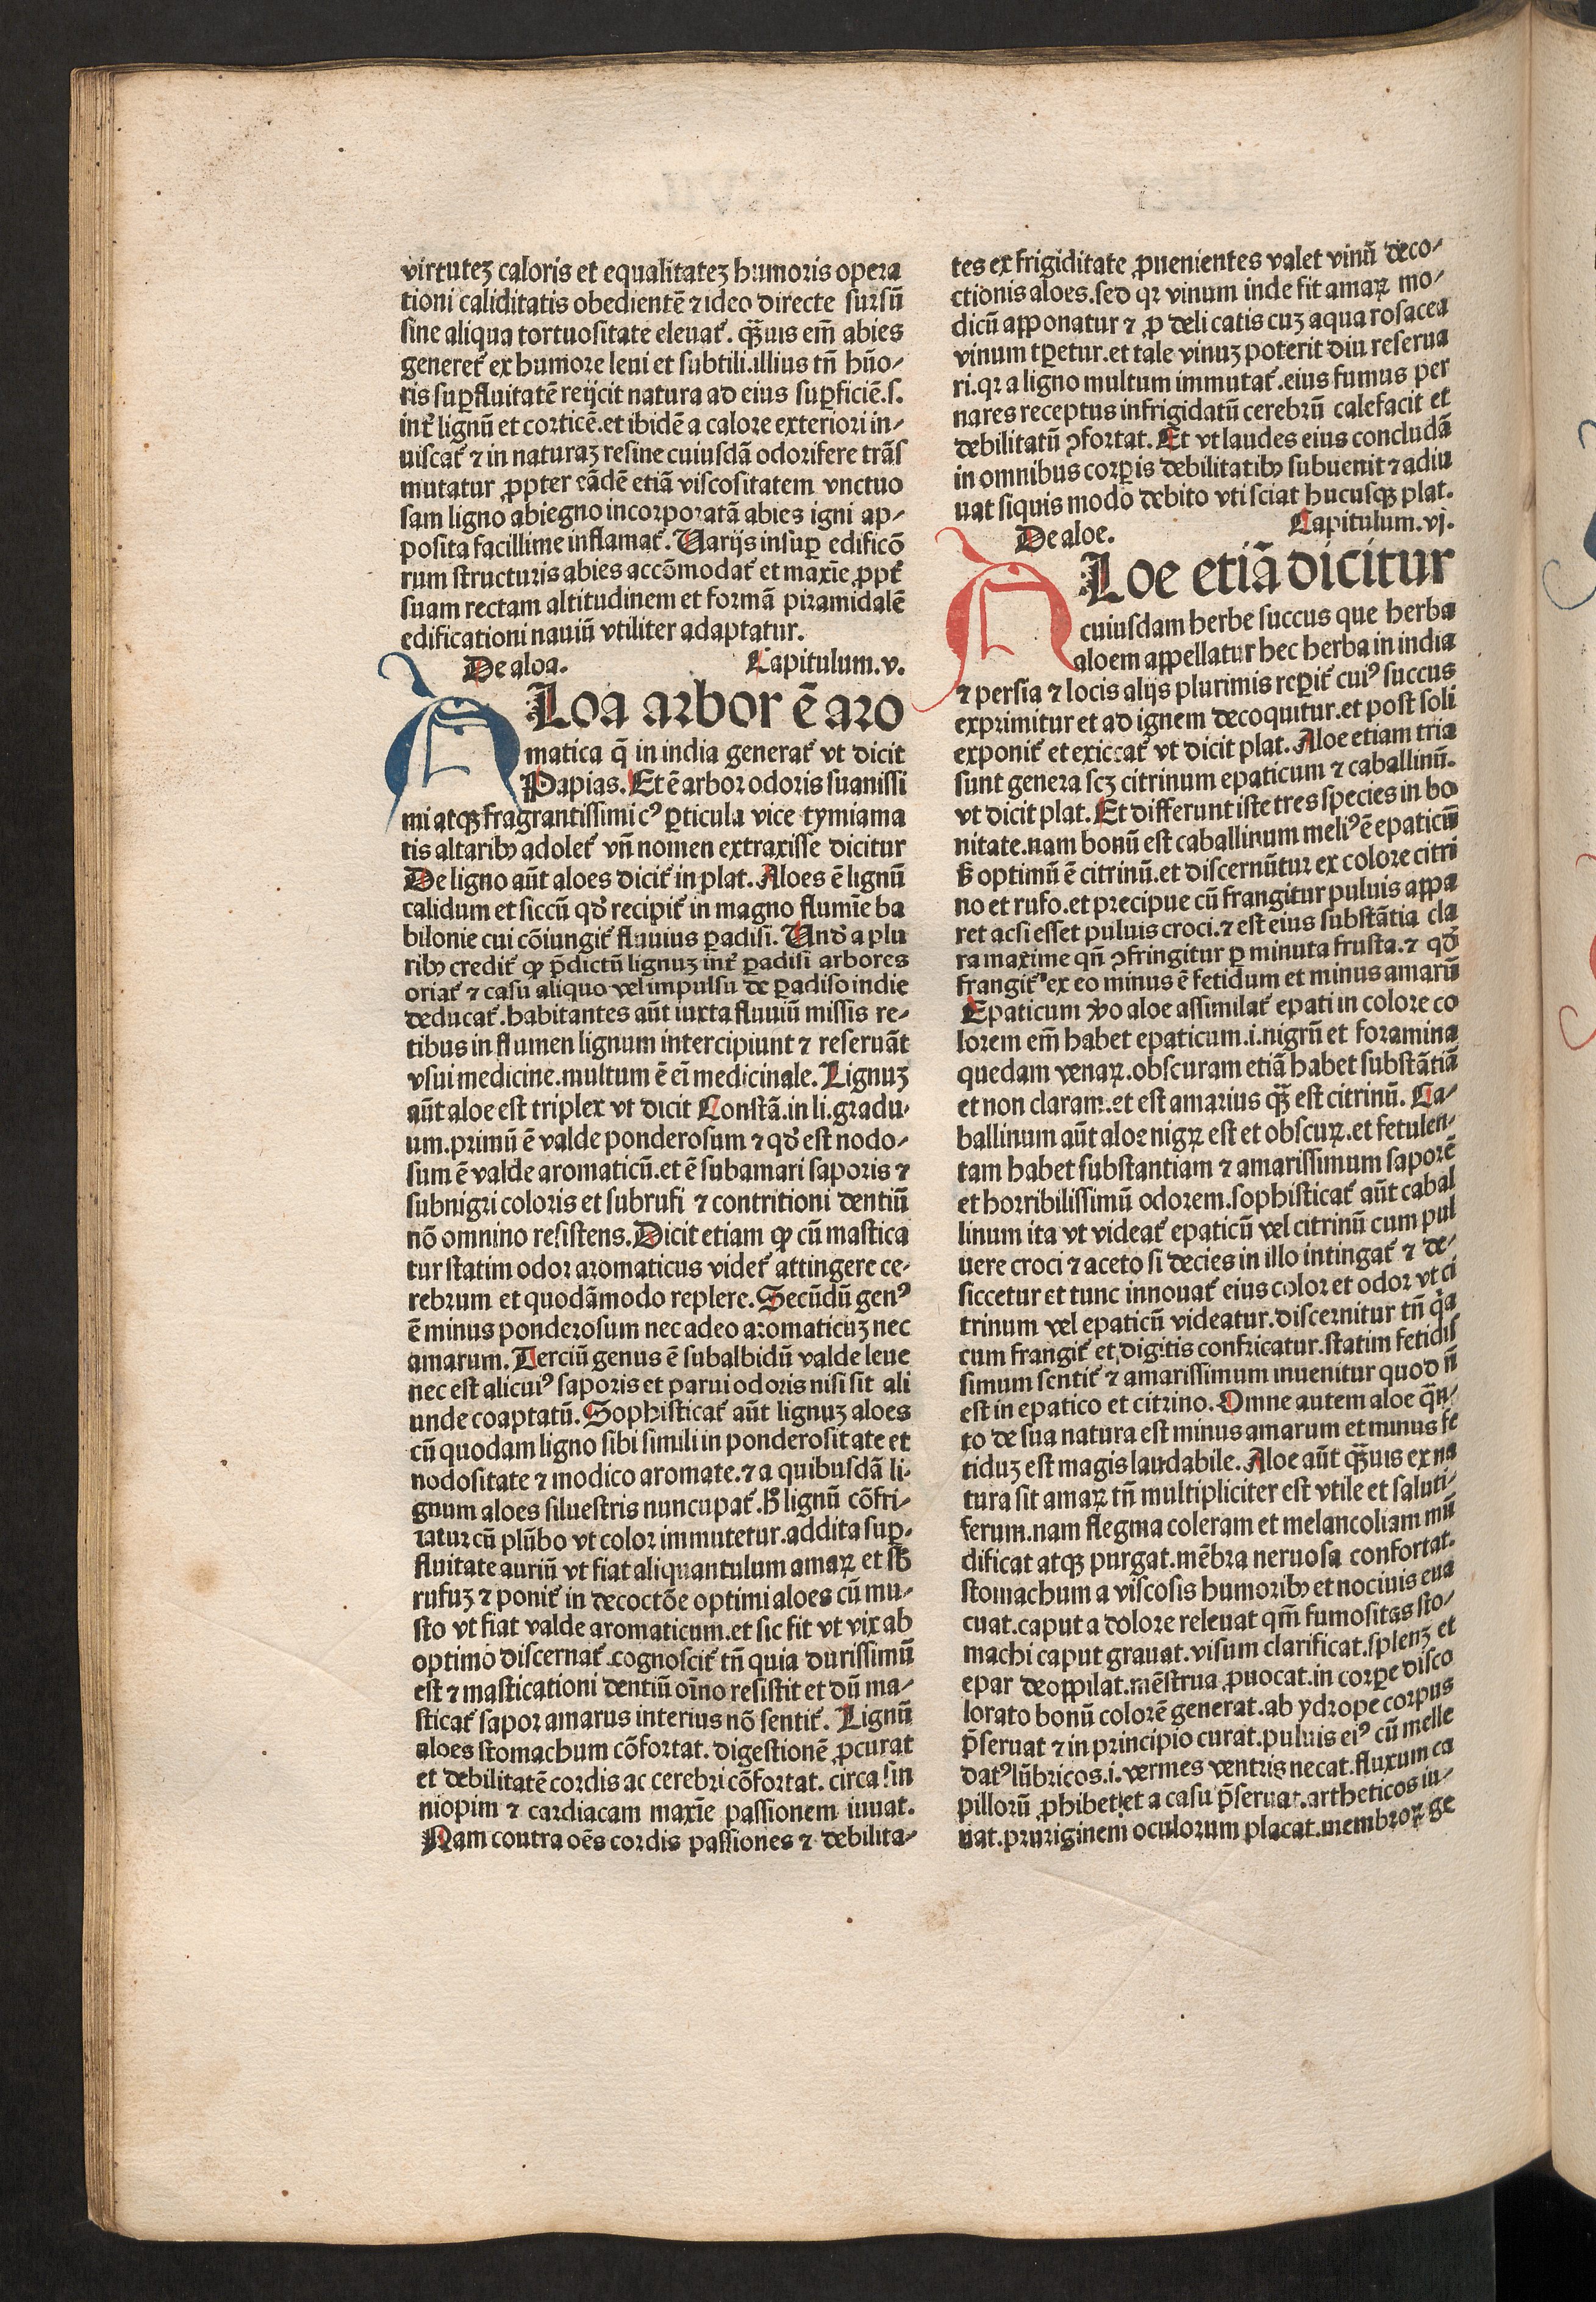 virtuteꝫ caloris et equalitateꝫ humoris opera
tioni caliditatis obedientē ⁊ ideo directe sursū
sine aliqua tortuositate eleuat᷑. qᷓuis em̄ abies
generet᷑ ex humore leui et subtili.illius tn̄ hūo-
ris suꝑfluitatē reijcit natura ad eius suꝑficiē.s.
int᷑ lignū et corticē.et ibidē a calore exteriori in-
uiscat᷑ ⁊ in naturaꝫ resine cuiusdā odorifere trās
mutatur ꝓpter eādē etiā viscositatem vnctuo
sam ligno abiegno incorporatā abies igni ap-
posita facillime inflamat᷑. Uarijs insuꝑ edificō
rum structuris abies accōmodat᷑ et maxīe ꝓpt᷑
suam rectam altitudinem et formā piramidalē
edificationi nauiū vtiliter adaptatur.
De aloa. Capitulum.v.
ALoa arbor ē aro
matica q̄ in india generat᷑ vt dicit
Papias. Et ē arbor odoris suauissi
mi atqꝫ fragrantissimi cꝰ ꝑticula vice tymiama
tis altaribꝫ adolet᷑ vn̄ nomen extraxisse dicitur
De ligno aūt aloes dicit᷑ in plat. Aloes ē lignū
calidum et siccū qd̓ recipit᷑ in magno flumīe ba
bilonie cui cōiungit᷑ fluuius ꝑadisi. Und̓ a plu
ribꝫ credit᷑ ꝙ p̄dictū lignuꝫ int᷑ ꝑadisi arbores
oriat᷑ ⁊ casu aliquo vel impulsu de ꝑadiso indie
deducat᷑.habitantes aūt iuxta fluuiū missis re-
tibus in flumen lignum intercipiunt ⁊ reseruāt
vsui medicine.multum ē ei̇̄ medicinale. Lignuꝫ
aūt aloe est triplex vt dicit Constā.in li.gradu-
um.primū ē valde ponderosum ⁊ qd̓ est nodo-
sum ē valde aromaticū.et ē subamari saporis ⁊
subnigri coloris et subrufi ⁊ contritioni dentiū
nō omnino resistens. Dicit etiam ꝙ cū mastica
tur statim odor aromaticus videt᷑ attingere ce-
rebrum et quodāmodo replere. Secūdū genꝰ
ē minus ponderosum nec adeo aromaticuꝫ nec
amarum. Terciū genus ē subalbidū valde leue
nec est alicuiꝰ saporis et parui odoris nisi sit ali
unde coaptatū. Sophisticat᷑ aūt lignuꝫ aloes
cū quodam ligno sibi simili in ponderositate et
nodositate ⁊ modico aromate.⁊ a quibusdā li-
gnum aloes siluestris nuncupat᷑. hͦ lignū cōfri-
catur cū plūbo vt color immutetur.addita suꝑ-
fluitate auriū vt fiat aliquantulum amaꝝ et sb̓
rufuꝫ ⁊ ponit᷑ in decoctōe optimi aloes cū mu-
sto vt fiat valde aromaticum.et sic fit vt vix ab
optimo discernat᷑.cognoscit᷑ tn̄ quia durissimū
est ⁊ masticationi dentiū oīno resistit et dū ma-
sticat᷑ sapor amarus interius nō sentit᷑. Lignū
aloes stomachum cōfortat. digestionē ꝓcurat
et debilitatē cordis ac cerebri cōfortat. circa sin
niopim ⁊ cardiacam maxīe passionem iuuat.
Nam contra oēs cordis passiones ⁊ debilita-
tes ex frigiditate ꝓuenientes valet vinū deco-
ctionis aloes.sed qꝛ vinum inde fit amaꝝ mo-
dicū apponatur ⁊ ꝓ delicatis cuꝫ aqua rosacea
vinum tꝑetur.et tale vinuꝫ poterit diu reserua
ri.qꝛ a ligno multum immutat᷑.eius fumus per
nares receptus infrigidatū cerebrū calefacit et
debilitatū ꝯfortat. Et vt laudes eius concludā
in omnibus corꝑis debilitatibꝫ subuenit ⁊ adiu
uat siquis modo debito vti sciat hucusqꝫ plat.
De aloe. Capitulum.vj.
ALoe etiā dicitur
cuiusdam herbe succus que herba
aloem appellatur hec herba in india
⁊ persia ⁊ locis alijs plurimis reꝑit᷑ cuiꝰ succus
exprimitur et ad ignem decoquitur.et post soli
exponit᷑ et exiccat᷑ vt dicit plat. Aloe etiam tria
sunt genera scꝫ citrinum epaticum ⁊ caballinū.
vt dicit plat. Et differunt iste tres species in bo
nitate.nam bonū est caballinum meliꝰ ē epaticū
sꝫ optimū ē citrinū.et discernūtur ex colore citri
no et rufo.et precipue cū frangitur puluis appa
ret acsi esset puluis croci.⁊ est eius substātia cla
ra maxime qn̄ ꝯfringitur ꝑ minuta frusta.⁊ qd̓
frangit᷑ ex eo minus ē fetidum et minus amarū
Epaticum v̓o aloe assimilat᷑ epati in colore co
lorem em̄ habet epaticum.i.nigrū et foramina
quedam venaꝝ.obscuram etiā habet substātiā
et non claram.et est amarius qᷓ est citrinū. Ca-
ballinum aūt aloe nigꝝ est et obscuꝝ.et fetulen-
tam habet substantiam ⁊ amarissimum saporē
et horribilissimū odorem.sophisticat᷑ aūt cabal
linum ita vt videat᷑ epaticū vel citrinū cum pul
uere croci ⁊ aceto si decies in illo intingat᷑ ⁊ de-
siccetur et tunc innouat᷑ eius color et odor vt ci
trinum vel epaticū videatur.discernitur tn̄ q̇a
cum frangit᷑ et digitis confricatur.statim fetidis
simum sentit᷑ ⁊ amarissimum inuenitur quod n̄
est in epatico et citrino. Omne autem aloe qᷓn-
to de sua natura est minus amarum et minus fe
tiduꝫ est magis laudabile. Aloe aūt qᷓuis ex na
tura sit amaꝝ tn̄ multipliciter est vtile et saluti-
ferum.nam flegma coleram et melancoliam mū
dificat atqꝫ purgat.mēbra neruosa confortat.
stomachum a viscosis humoribꝫ et nociuis eua
cuat.caput a dolore releuat qm̄ fumositas sto-
machi caput grauat.visum clarificat.splenꝫ et
epar deoppilat.mēstrua ꝓuocat.in corꝑe disco
lorato bonū colorē generat.ab ydrope corpus
p̄seruat ⁊ in principio curat.puluis eiꝰ cū melle
datꝰ lūbricos.i.vermes ventris necat.fluxum ca
pillorū ꝓhibet et a casu p̄seruat.artheticos iu-
uat.pruriginem oculorum placat.membroꝝ ge